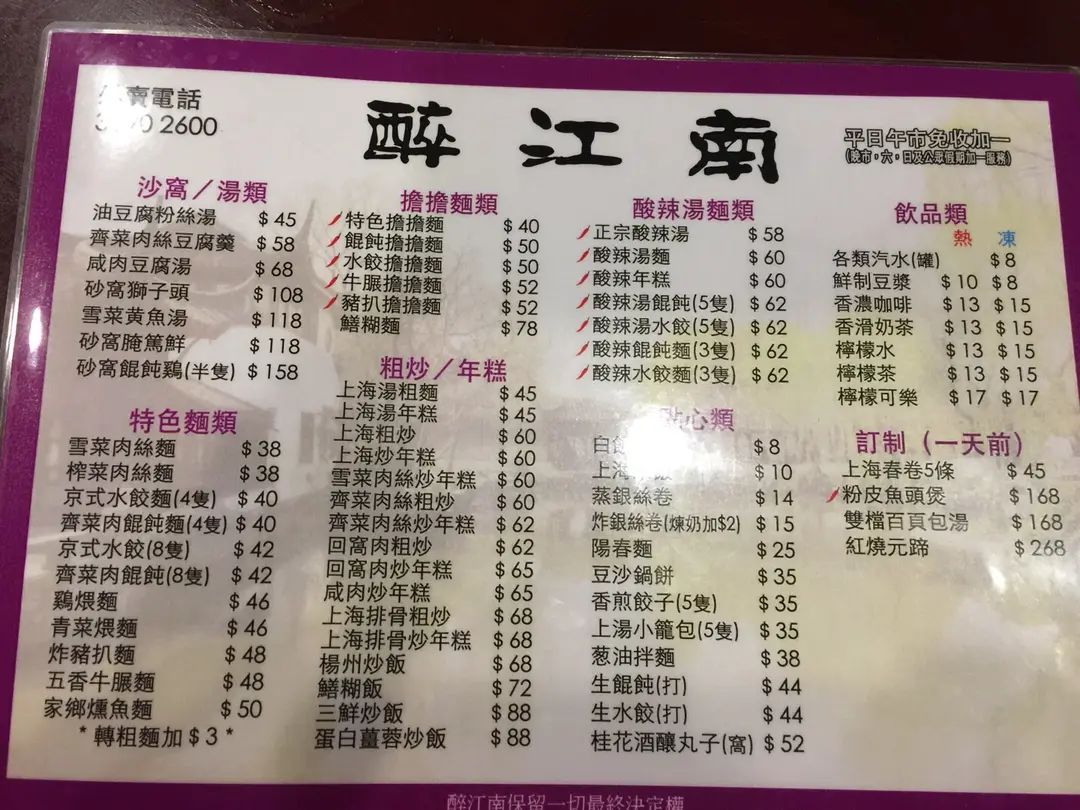 賣電話
2600
醉江南
平日午市免收加一
(晚市，六，日及公眾假期加一服務)
沙窩／湯類
油豆腐粉絲湯 $45
齊菜肉絲豆腐羹 $58
咸肉豆腐湯 $68
砂窩獅子頭 $108
雪菜黃魚湯 $118
砂窩腌篤鮮 $118
砂窩餛飩鷄(半隻) $158
特色麵類
雪菜肉絲麵 $38
榨菜肉絲麵 $38
京式水餃麵(4隻) $40
齊菜肉餛飩麵(4隻) $40
京式水餃(8隻) $42
齊菜肉餛飩(8隻) $42
鷄煨麵 $46
青菜煨麵 $46
炸豬扒麵 $48
五香牛𦟌麵 $48
家鄉燻魚麵 $50
*轉粗麵加$3*
擔擔麵類
特色擔擔麵 $40
餛飩擔擔麵 $50
水餃擔擔麵 $50
牛𦟌擔擔麵 $52
豬扒擔擔麵 $52
鱔糊麵 $78
粗炒／年糕
上海湯粗麵 $45
上海湯年糕 $45
上海粗炒 $60
上海炒年糕 $60
雪菜肉絲炒年糕 $60
齊菜肉絲粗炒 $60
齊菜肉絲炒年糕 $62
回窩肉粗炒 $62
回窩肉炒年糕 $65
咸肉炒年糕 $65
上海排骨粗炒 $68
上海排骨炒年糕 $68
楊州炒飯 $68
鱔糊飯 $72
三鮮炒飯 $88
蛋白薑蓉炒飯 $88
酸辣湯麵類
正宗酸辣湯 $58
酸辣湯麵 $60
酸辣年糕 $60
酸辣湯餛飩(5隻) $62
酸辣湯水餃(5隻) $62
酸辣餛飩麵(3隻) $62
酸辣水餃麵(3隻) $62
點心類
白飯 $8
上海 $10
蒸銀絲卷 $14
炸銀絲卷(煉奶加$2) $15
陽春麵 $25
豆沙鍋餅 $35
香煎餃子(5隻) $35
上湯小籠包(5隻) $35
葱油拌麵 $38
生餛飩(打) $44
生水餃(打) $44
桂花酒釀丸子(窩) $52
飲品類
熱 凍
各類汽水(罐) $8
鮮制豆漿 $10 $8
香濃咖啡 $13 $15
香滑奶茶 $13 $15
檸檬水 $13 $15
檸檬茶 $13 $15
檸檬可樂 $17 $17
訂制（一天前）
上海春卷5條 $45
粉皮魚頭煲 $168
雙檔百頁包湯 $168
紅燒元蹄 $268
醉江南保留一切最終決定權